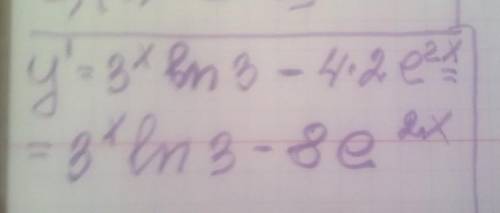 y' = 3^x ln 3 - 4·2e^{2x} =
= 3^x ln 3 - 8e^{2x}